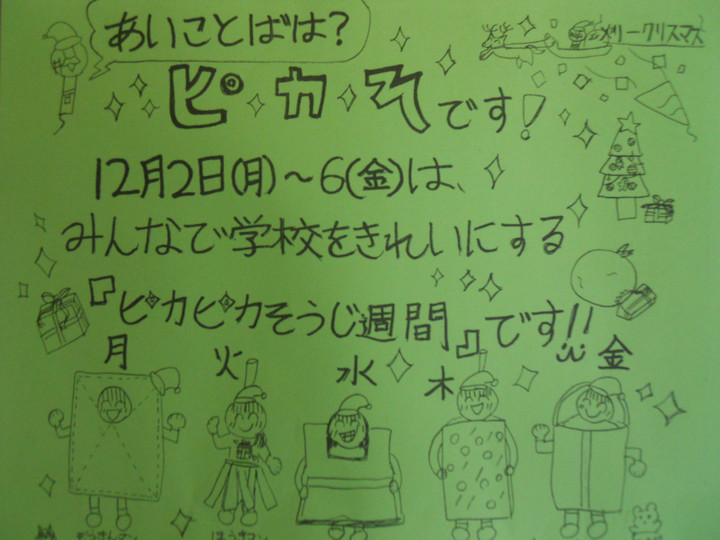 あいことばは?
メリークリスマス
ピカそです!
12月2日(月)~6(金)は、
みんなで学校をきれいにする
『ピカピカそうじ週間』です!!
月 火 水 木 金
ぞうきんマン ほうきマン